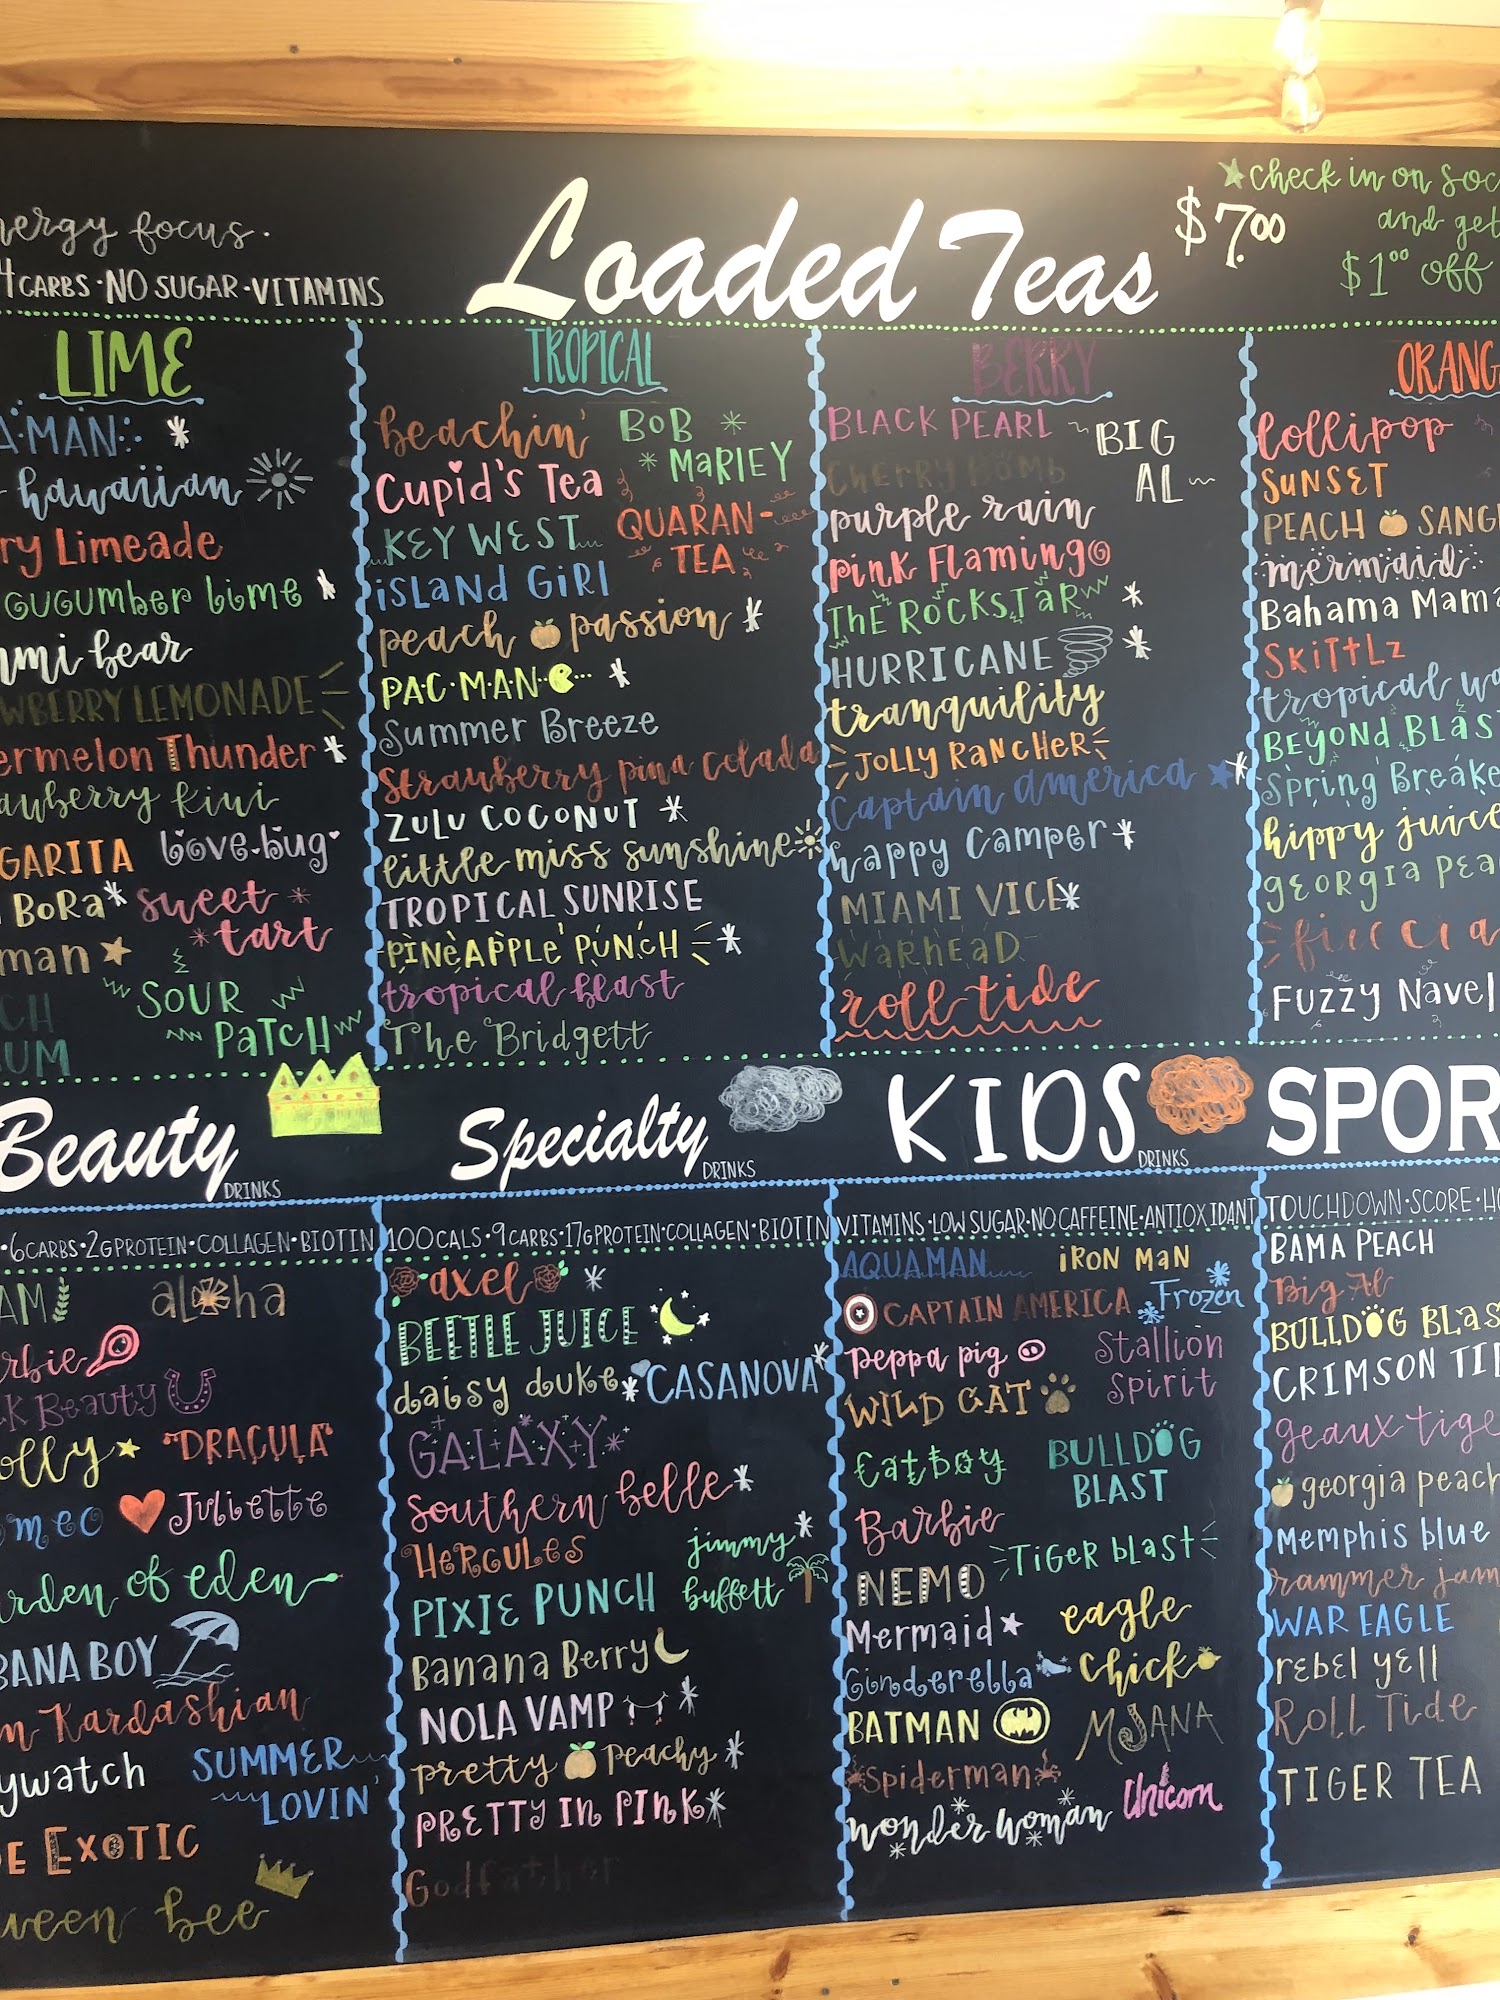 energy focus.
4 CARBS · NO SUGAR · VITAMINS
Loaded Teas
$7.00
★check in on
and get
$1.00 off
LIME
hawaiian
Limeade
CUCUMBER LIME
bear
LEMONADE
Thunder
kiwi
love bug
BORA
sweet
tart
man
SOUR
PATCH
TROPICAL
beachin'
BOB
MARLEY
Cupid's Tea
KEY WEST
QUARAN-
TEA
ISLAND GIRL
peach passion
PAC·MAN
Summer Breeze
Strawberry pina colada
ZULU COCONUT
little miss sunshine
TROPICAL SUNRISE
PINEAPPLE PUNCH
tropical blast
The Bridgett
BERRY
BLACK PEARL
~BIG
AL~
CHERRY BOMB
purple rain
PINK FLAMINGO
THE ROCKSTAR
HURRICANE
tranquility
JOLLY RANCHER
Captain america
happy camper
MIAMI VICE
WARHEAD
roll tide
lollipop
SUNSET
PEACH
mermaid
Bahama Mama
SKITTLZ
tropical
BEYOND BLAST
Spring Breaker
hippy juice
GEORGIA
FUZZY Navel
Beauty
DRINKS
· 6 CARBS · 2G PROTEIN · COLLAGEN · BIOTIN
aloha
Beauty
DRACULA
Juliette
of eden
BOY
Kardashian
SUMMER
LOVIN'
EXOTIC
bee
Specialty
DRINKS
100 CALS · 9 CARBS · 17G PROTEIN · COLLAGEN · BIOTIN
axel
BEETLE JUICE
daisy duke
CASANOVA
GALAXY
southern belle
HERCULES
jimmy
buffett
PIXIE PUNCH
Banana Berry
NOLA VAMP
pretty peachy
PRETTY IN PINK
Godfather
KIDS
DRINKS
VITAMINS · LOW SUGAR · NO CAFFEINE · ANTIOXIDANT
AQUAMAN
IRON MAN
CAPTAIN AMERICA
Frozen
peppa pig
Stallion
Spirit
WILD CAT
Catboy
BULLDOG
BLAST
Barbie
NEMO
TIGER BLAST
Mermaid
eagle
Cinderella
chick
BATMAN
MOANA
Spiderman
Unicorn
wonder woman
TOUCHDOWN · SCORE ·
BAMA PEACH
Big Al
BULLDOG BLAST
CRIMSON
geaux
georgia peach
MEMPHIS blue
rammer
WAR EAGLE
rebel yell
Roll Tide
TIGER TEA